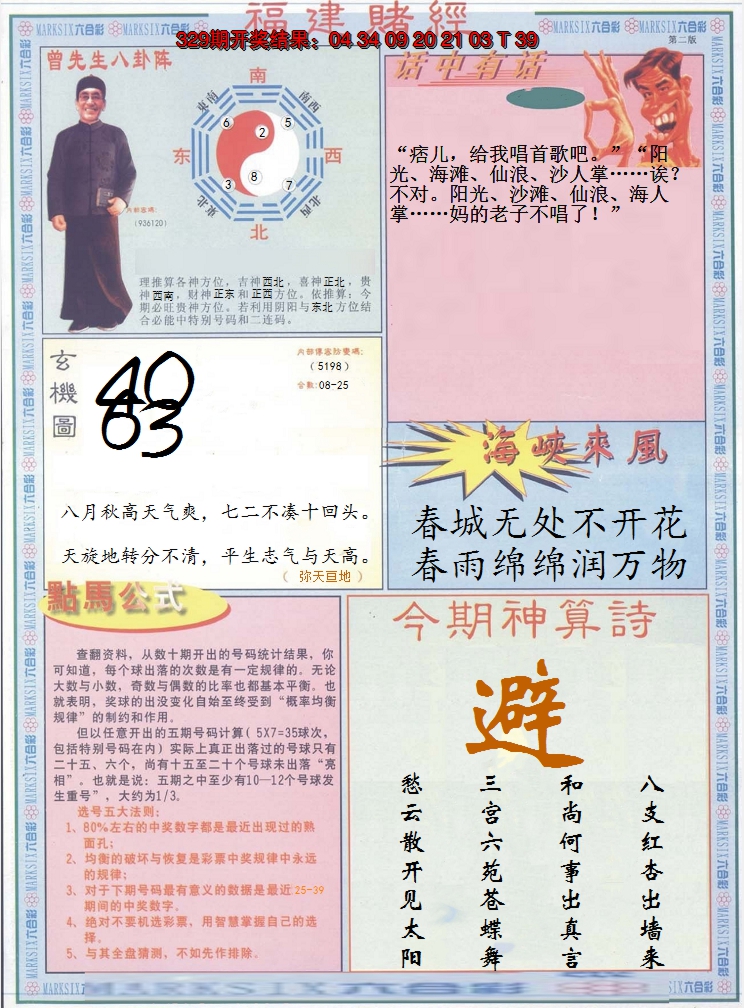 福建賭經
329期开奖结果：04 34 09 20 21 03 T 39
MARKSIX六合彩
第二版
曾先生八卦阵
南
东南
南西
6
2
5
东
西
3
8
7
東北
北西
北
内部密碼:
(936120)
理推算各神方位，吉神西北，喜神正北，贵
神西南，财神正东和正西方位。依推算：今
期必旺贵神方位。若利用阴阳与东北方位结
合必能中特别号码和二连码。
话中有话
“痞儿，给我唱首歌吧。”“阳
光、海滩、仙浪、沙人掌……诶？
不对。阳光、沙滩、仙浪、海人
掌……妈的老子不唱了！”
玄機圖
内部傳密防變碼:
(5198)
合数:08-25
40
63
八月秋高天气爽，七二不凑十回头。
天旋地转分不清，平生志气与天高。
（ 弥天亘地 ）
海峡來風
春城无处不开花
春雨绵绵润万物
點馬公式
查翻资料，从数十期开出的号码统计结果，你
可知道，每个球出落的次数是有一定规律的。无论
大数与小数，奇数与偶数的比率也都基本平衡。也
就表明，奖球的出没变化自始至终受到“概率均衡
规律”的制约和作用。
但以任意开出的五期号码计算( 5X7=35球次，
包括特别号码在内) 实际上真正出落过的号球只有
二十五、六个，尚有十五至二十个号球未出落“亮
相”。也就是说：五期之中至少有10—12个号球发
生重号”，大约为1/3。
选号五大法则:
1、80%左右的中奖数字都是最近出现过的熟
面孔;
2、均衡的破坏与恢复是彩票中奖规律中永远
的规律;
3、对于下期号码最有意义的数据是最近25-39
期间的中奖数字。
4、绝对不要机选彩票，用智慧掌握自己的选
择。
5、与其全盘猜测，不如先作排除。
今期神算詩
避
八支红杏出墙来
和尚何事出真言
三宫六苑苍蝶舞
愁云散开见太阳